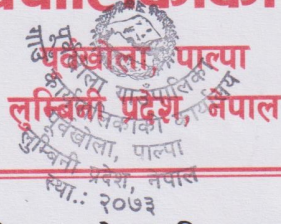 पूर्वखोला, पाल्पा
लुम्बिनी प्रदेश, नेपाल
पूर्वखोला गाउँपालिका
गाउँ कार्यपालिकाको कार्यालय
पूर्वखोला, पाल्पा
लुम्बिनी प्रदेश, नेपाल
स्था.: २०७३